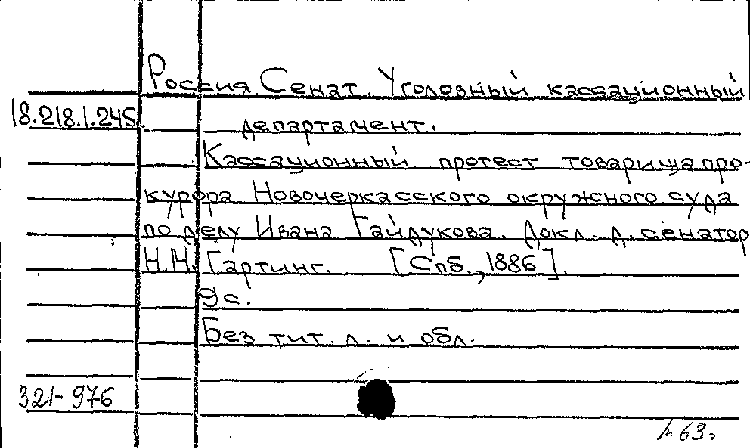 Россия. Сенат. Уголовный кассационный
18.218.1.245
департамент.
Кассационный протест товарища про-
курора Новочеркасского окружного суда
по делу Ивана Гайдукова. Докл. д. сенатор
Н.Н. Гартинг. [Спб., 1886].
9с.
Без тит. л. и обл.
321-976